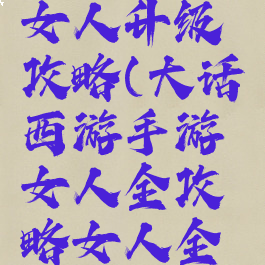 女人升级
攻略(大话
西游手游
女人全攻
略女人全